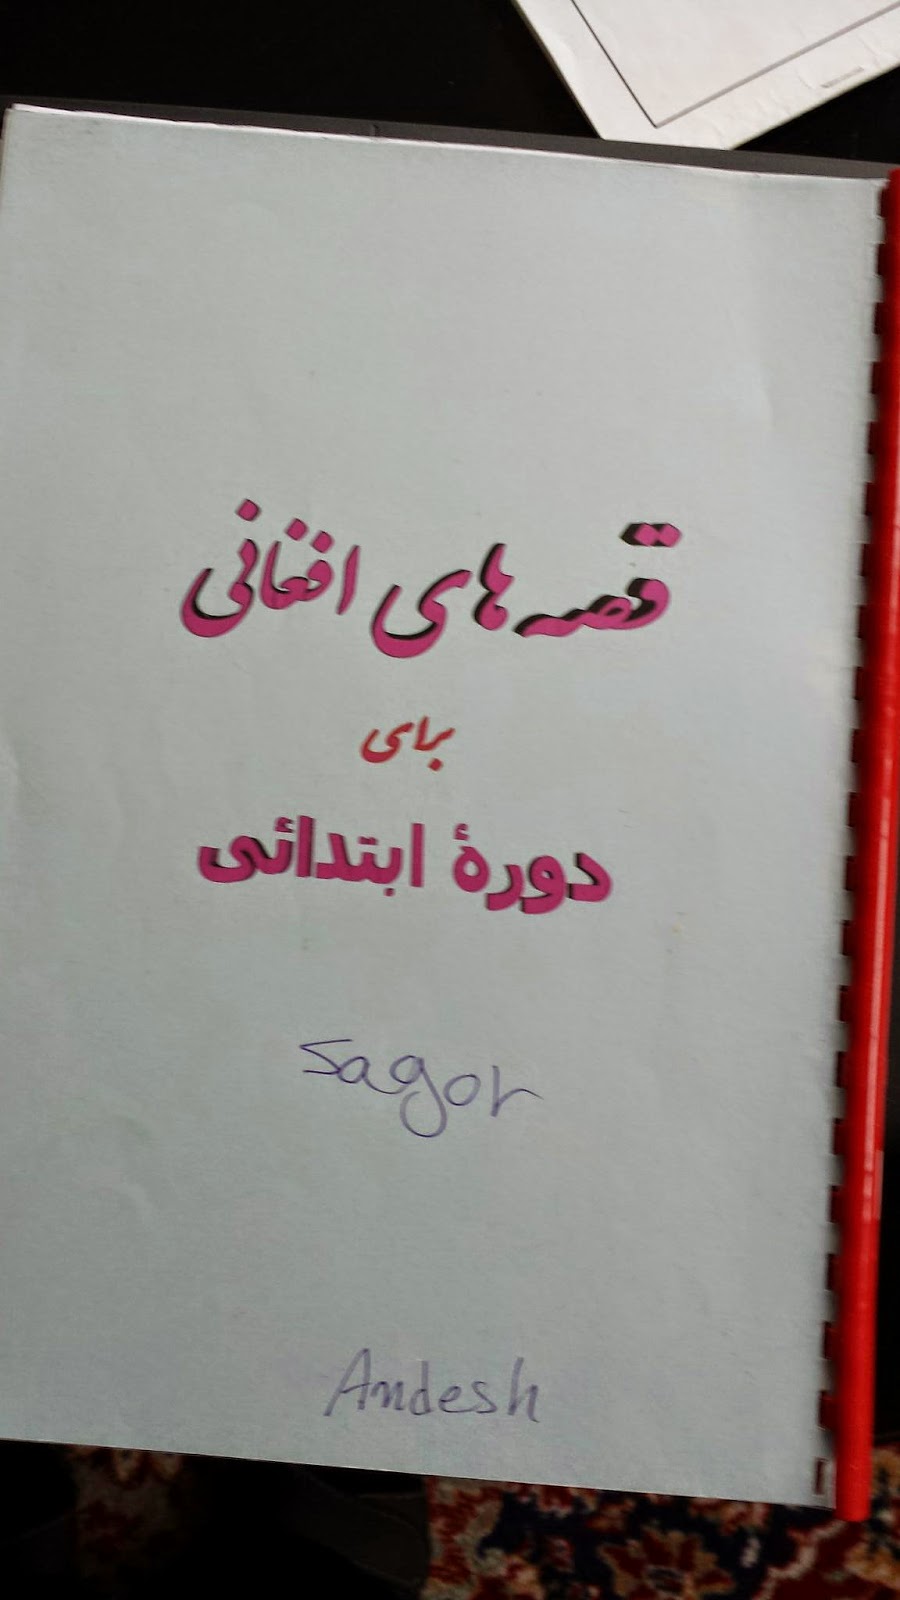 قصه های افغانی
برای
دورۀ ابتدائی
Sagor
Andesh